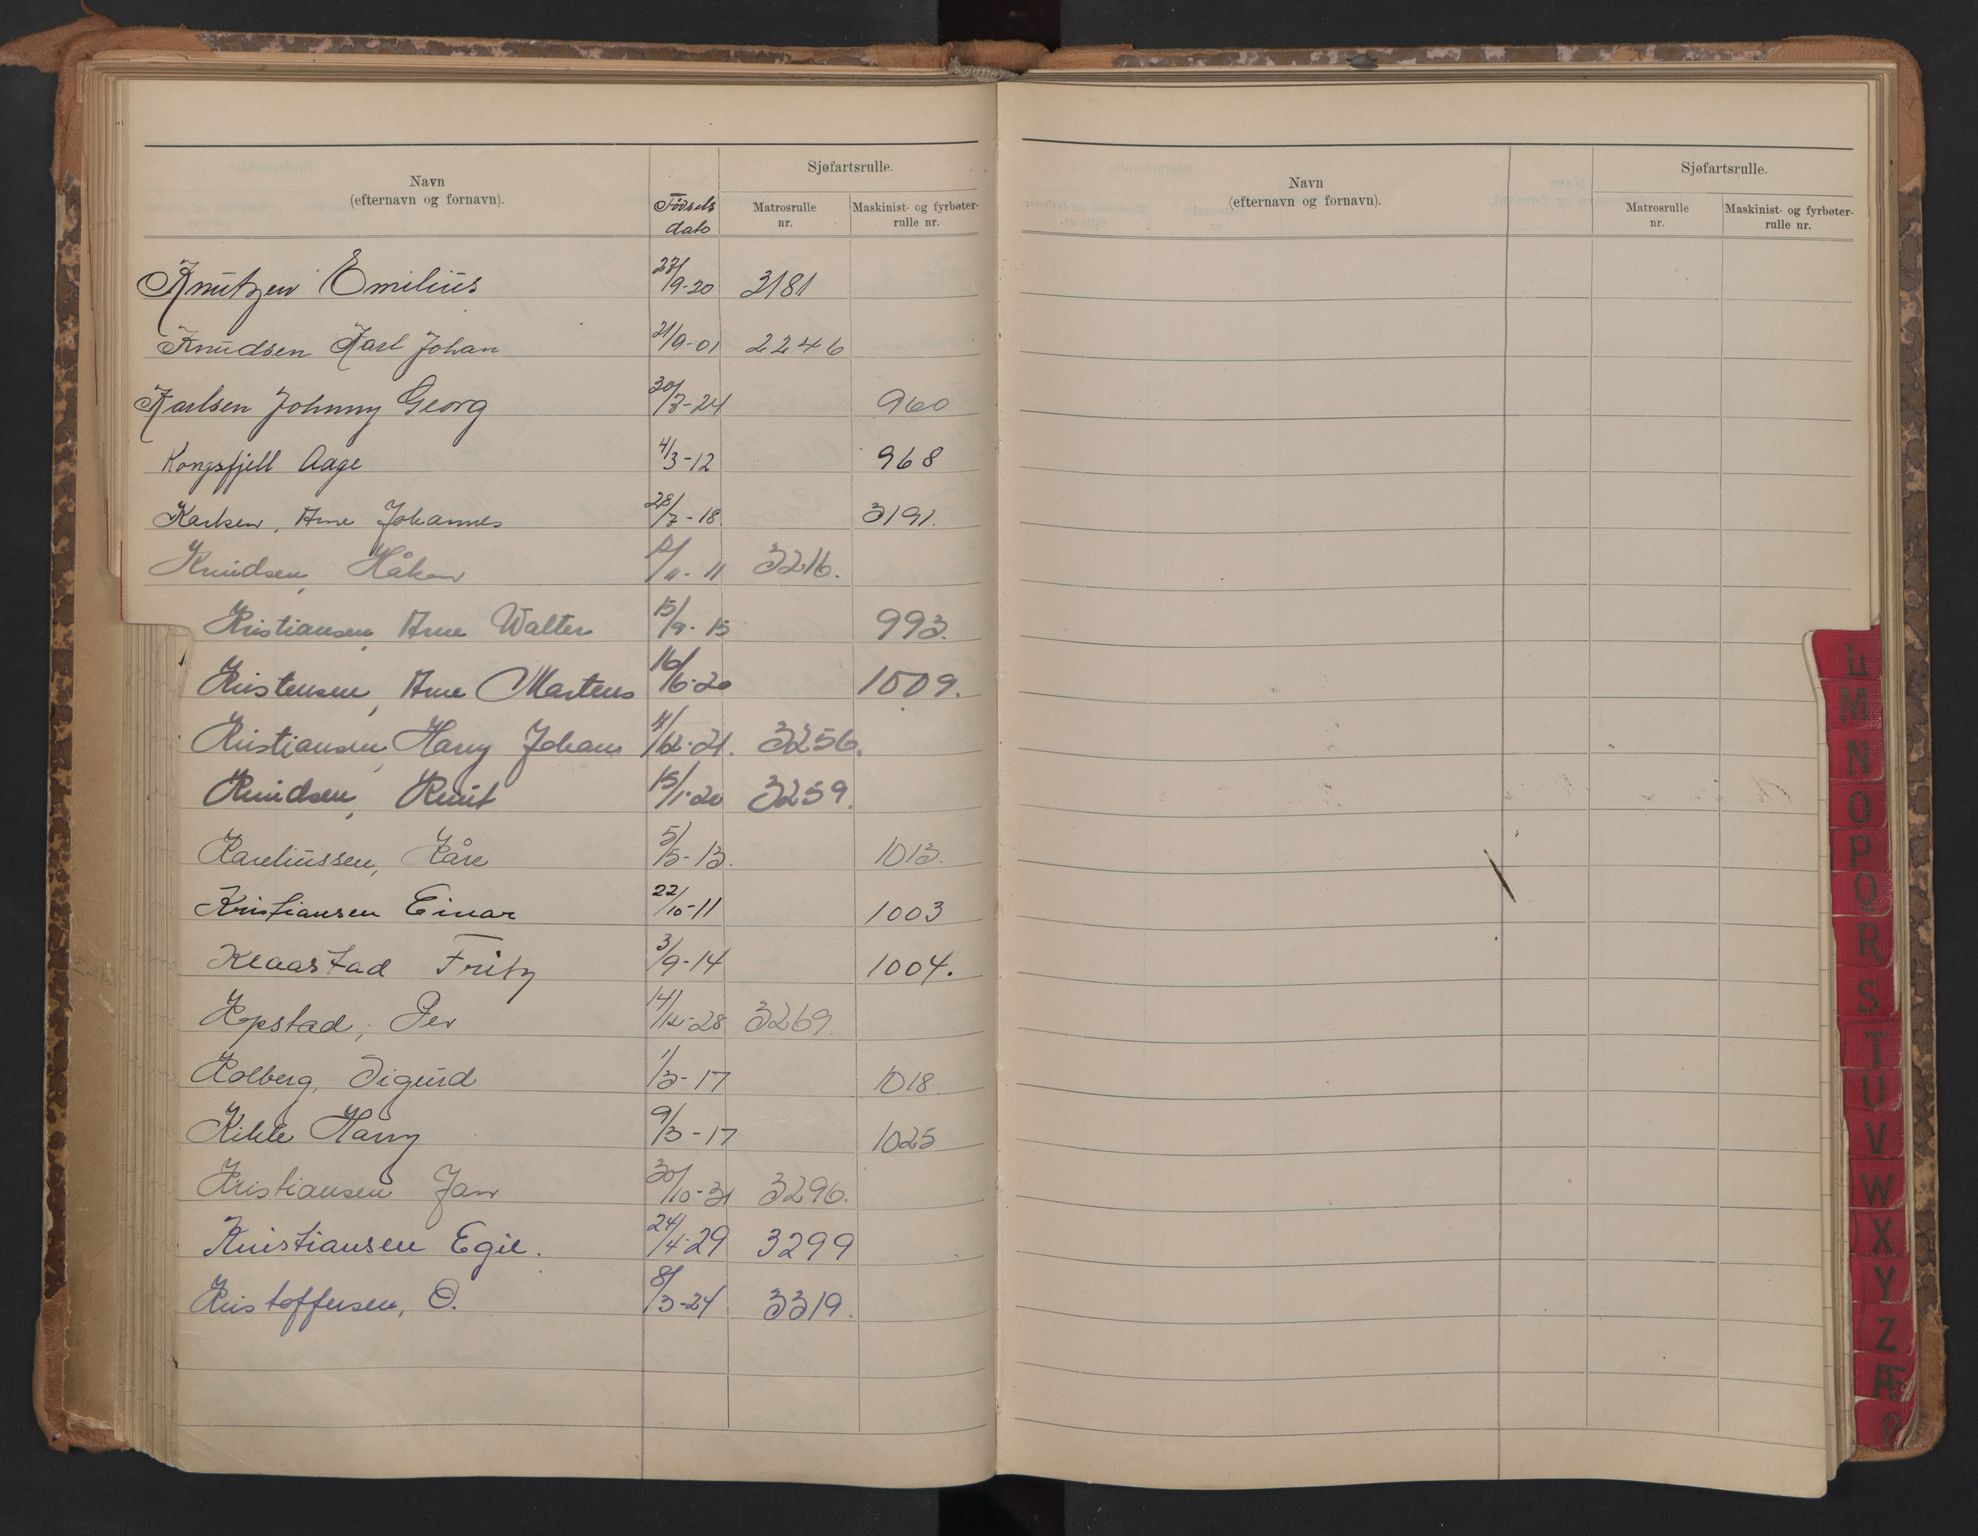 Navn (efternavn og fornavn). Fødsels dato Sjøfartsrulle. Matrosrulle nr. Maskinist- og fyrbøter- rulle nr.
Knutzen Emilius 27/9-20 3181
Knudsen Karl Johan 21/9-01 2246
Karlsen Johnny Georg 30/3-24 960
Kongsfjell Aage 4/3-12 968
Karlsen, Arne Johannes 28/7-18 3191.
Knudsen, Håkon 12/11-11 3216.
Kristiansen, Arne Walter 15/9-15 993.
Kristensen, Arne Martens 16/6-20 1009.
Kristiansen, Harry Johan 4/12-21. 3256.
Knudsen, Knut 15/1-20 3259.
Kareliussen, Kåre 5/5-13. 1013.
Kristiansen Einar 22/10-11 1003
Klaastad Fritz 3/9-14 1004.
Kopstad, Per 14/12-28 3269.
Kolberg, Sigurd 1/3-17 1018
Kihle Harry 9/3-17 1025
Kristiansen Jan 30/10-31 3296.
Kristiansen Egil. 24/4-29 3299
Kristoffersen, O. 8/3-24 3319.
Navn (efternavn og fornavn). Sjøfartsrulle. Matrosrulle nr. Maskinist- og fyrbøter- rulle nr.
L
M
N
O
P
Q
R
S
T
U
V
W
X
Y
Z
Æ